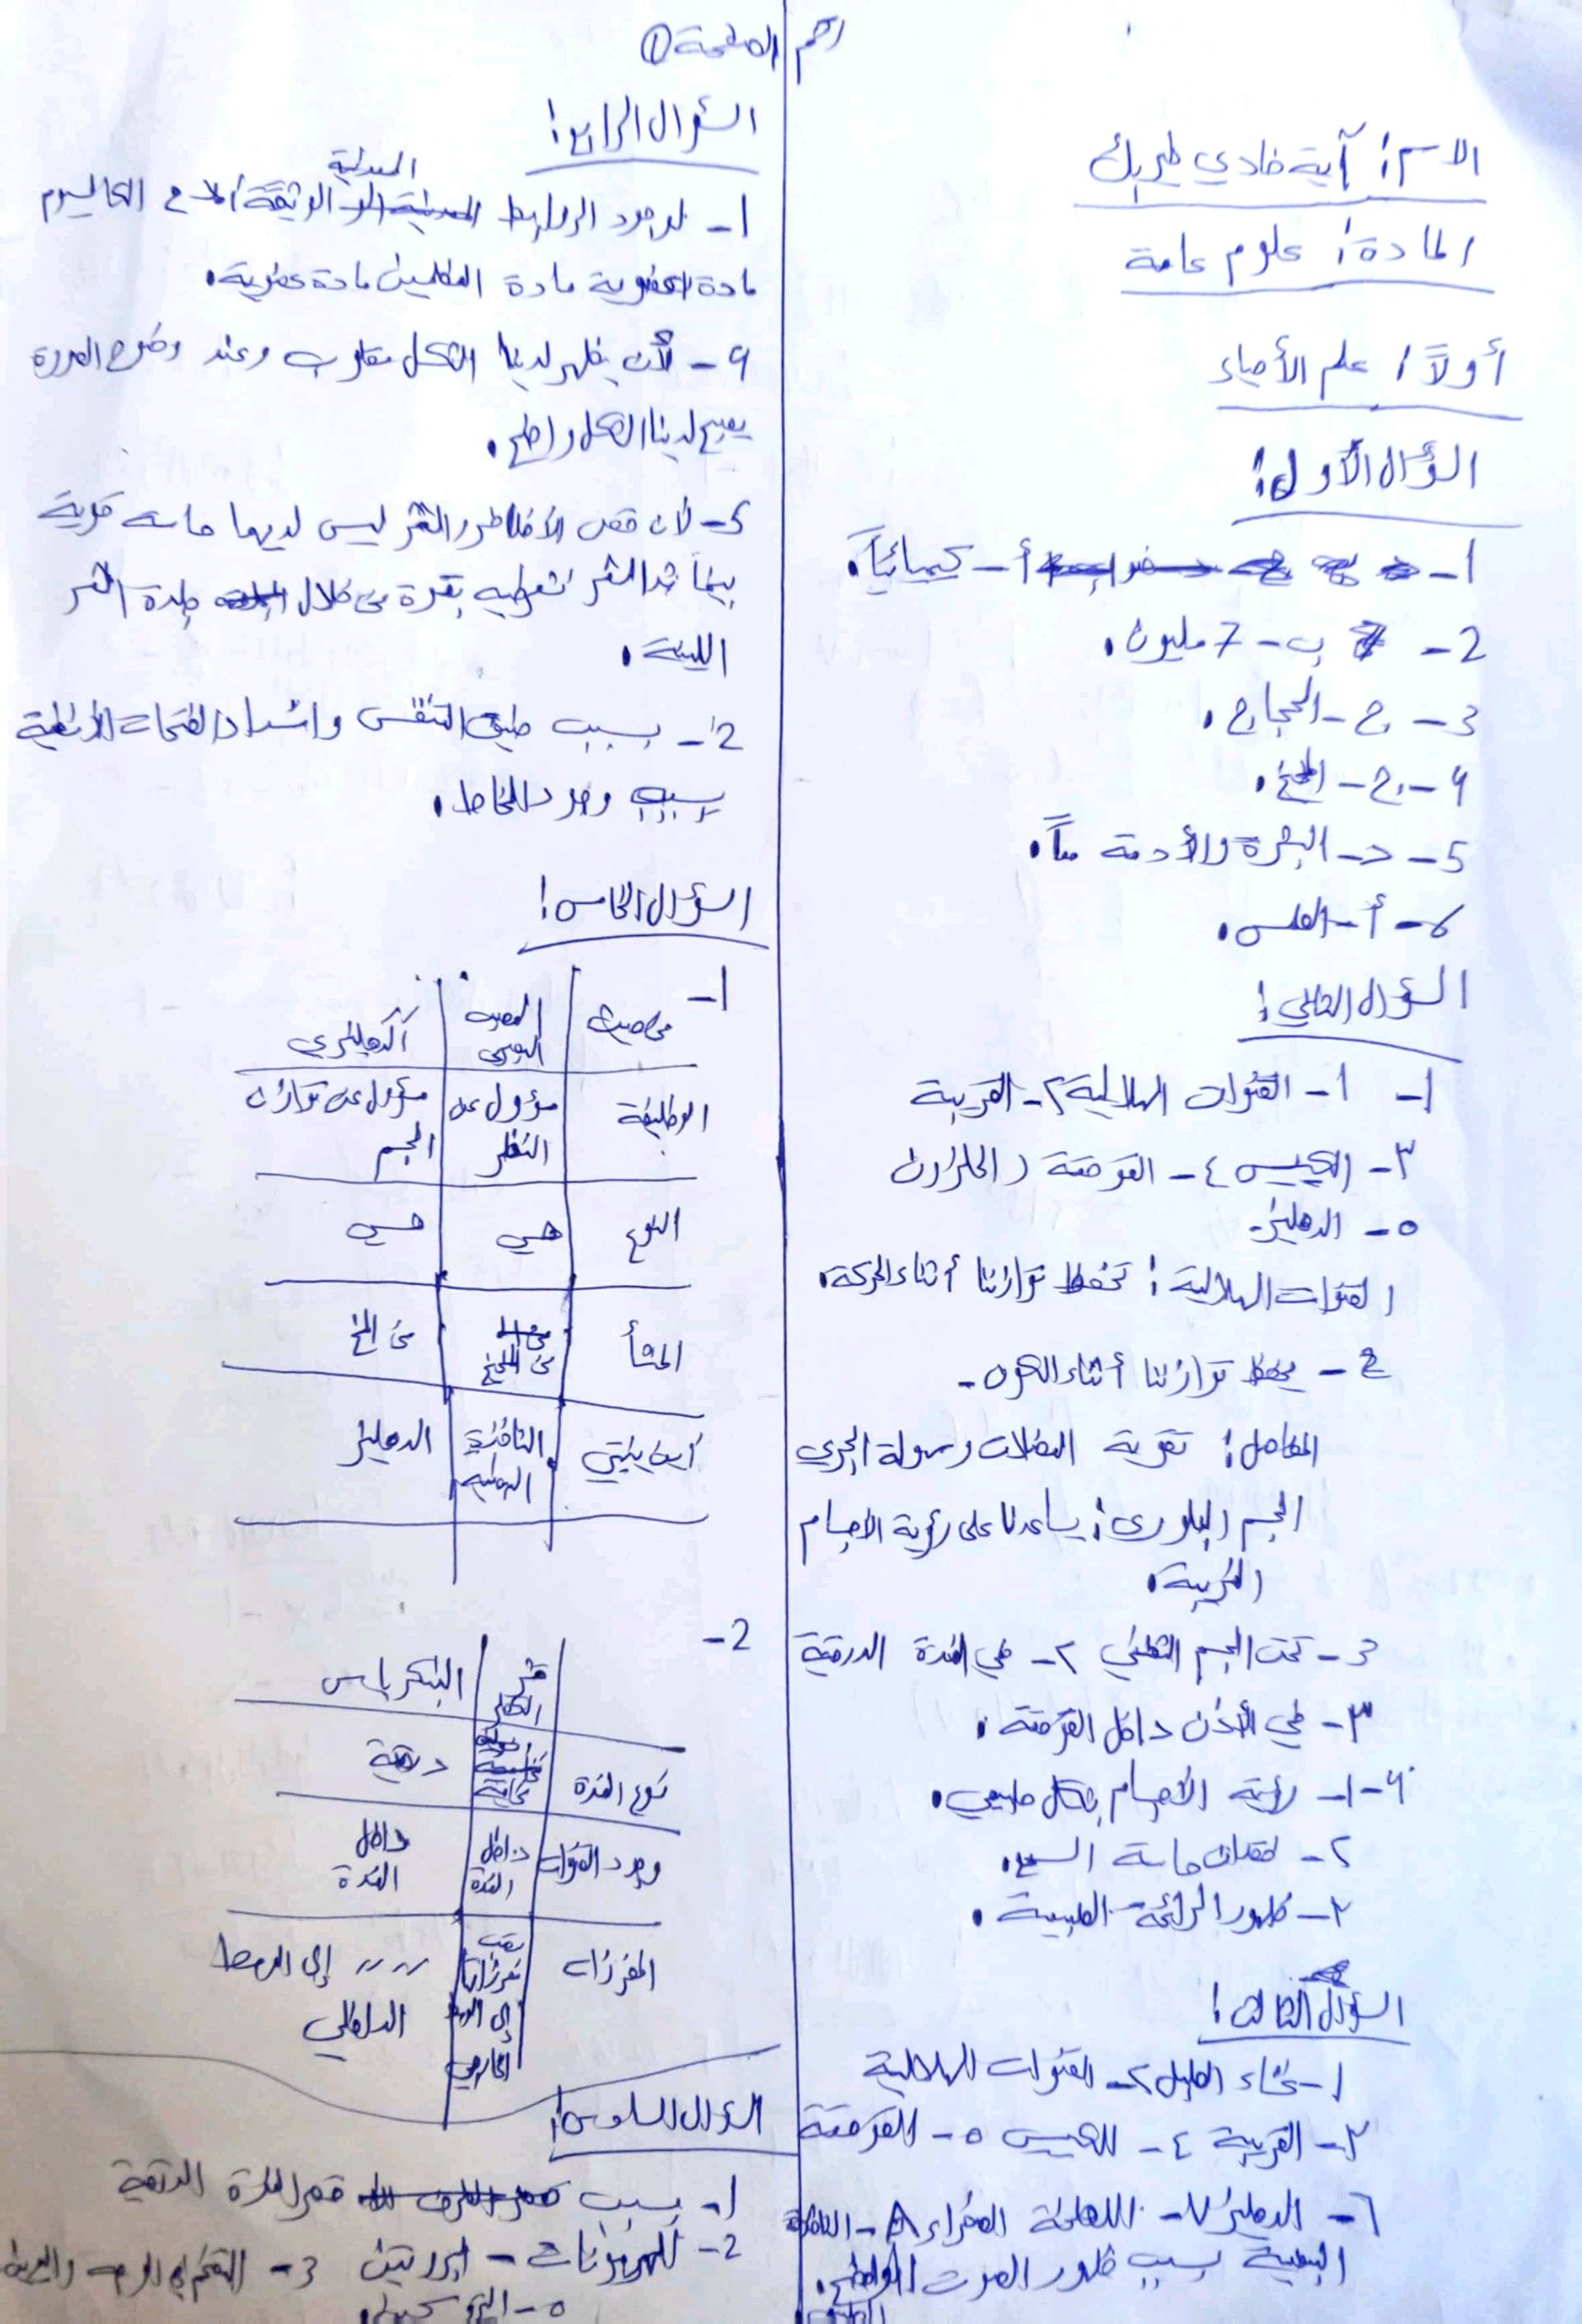 رقم الصفحة ①
الاسم: آية فادي
المادة: علوم عامة
أولاً: علم الأحياء
السؤال الأول:
1- أ- كيميائياً.
2- ب- 7 مليون.
3- ج- الحجاج.
4- ج- المخ.
5- د- البشرة والأدمة معاً.
6- أ- الملس.
السؤال الثاني:
1- 1- القنوات الهلالية ٢- القريبة
٣- الكييس ٤- القوقعة (الحلزون
٥- الدهليز.
القنوات الهلالية: تحفظ توازننا أثناء الحركة.
2- يحفظ توازننا أثناء السكون.
المفاصل: تقوية العضلات وسهولة الجري
الجسم البلوري: يساعدنا على رؤية الأجسام
القريبة.
3- تحت الجسم الثفني ٢- في الغدة الدرقية
٣- في الأذن داخل القوقعة.
4- 1- رؤية الأجسام بشكل طبيعي.
٢- فقدان حاسة السمع.
٣- ظهور الرائحة الطيبية.
السؤال الثالث:
1- غشاء الطبل ٢- القنوات الهلالية
٣- القريبة ٤- الكييس ٥- القوقعة
٦- الدهليز ٧- اللطخة الصفراء ٨- النافذة
البيضية بسبب ظهور الصوت الواضح.
السؤال الرابع:
1- لوجود الروابط المعدنية الوثيقة أملاح الكالسيوم
مادة عضوية مادة العظمين مادة عضوية.
4- لأن يظهر لدينا الشكل مقلوب وعند وضوح الصورة
يصبح لدينا الشكل واضح.
5- لأن قص الأظافر والشعر ليس لديهما حاسة قوية
بينما شد الشعر نتعرض بقوة من خلال جلدة الشعر
اللينة.
2- بسبب ضيق التنفس وانسداد الفتحات الأنفية
بسبب وجود المخاط.
السؤال الخامس:
1-
العصب البصري | الدهليزي
الوظيفة | مسؤول عن النظر | مسؤول عن توازن الجسم
النوع | حسي | حسي
المنشأ | من المخ | من المخ
أين ينتهي | النافذة | الدهليز
2-
قشر الكظر | البنكرياس
نوع الغدة | درقية
وجود القنوات | داخل الغدة | داخل الغدة
المفرزات | يصب مفرزاتها إلى الوسط الخارجي | 〃 〃 إلى الوسط الداخلي
السؤال السادس:
1- بسبب قصر الغدة الدرقية
2- الهرمونات - البروتين 3- التحكم